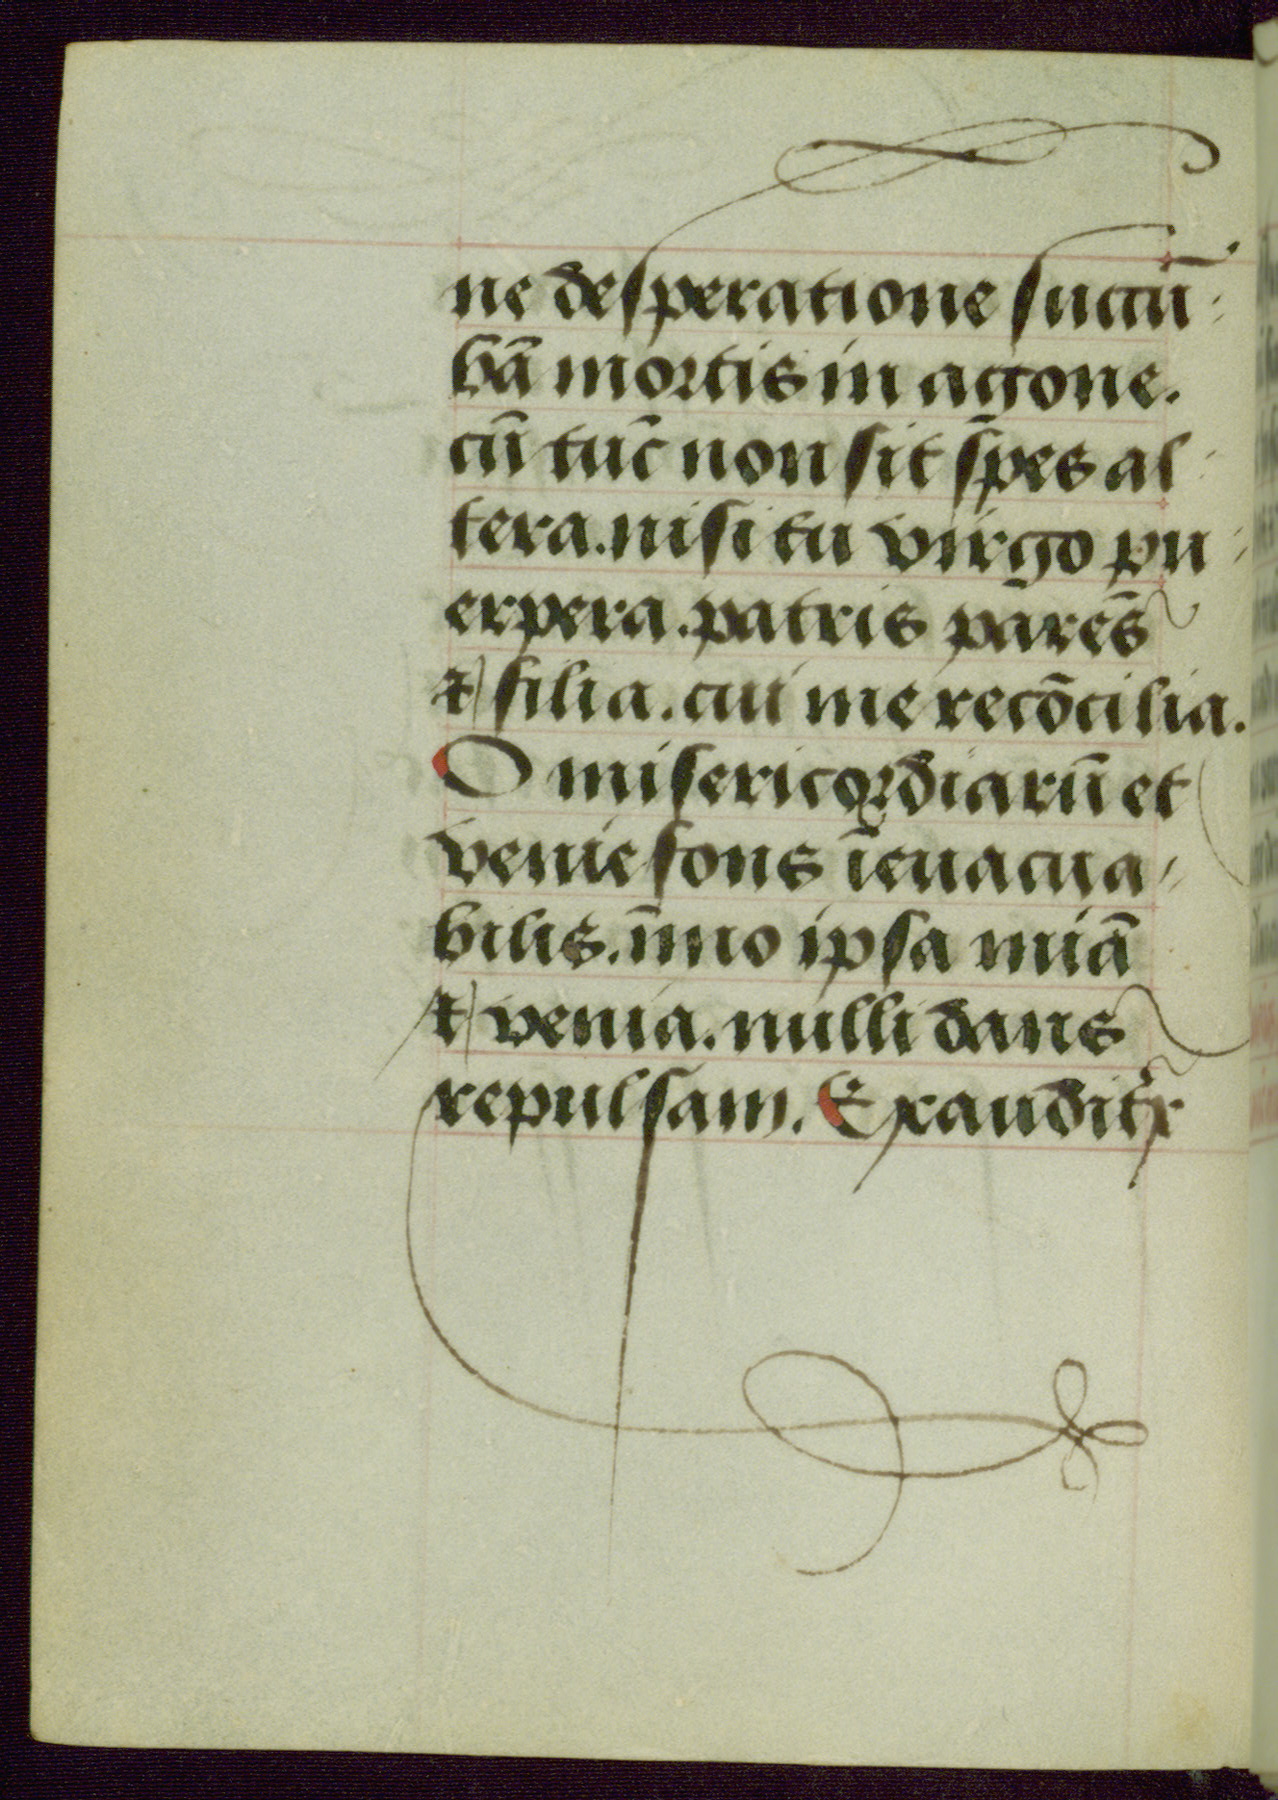 ne desperatione succū-
bā mortis in agone.
cū tūc non sit spes al-
tera. nisi tu virgo pu-
erpera. patris parēs
⁊ filia. cui me recōcilia.
O misericordiarū et
venie fons īeuacua-
bilis. īmo ipsa miā
⁊ venia. nulli dans
repulsam. Exauditr